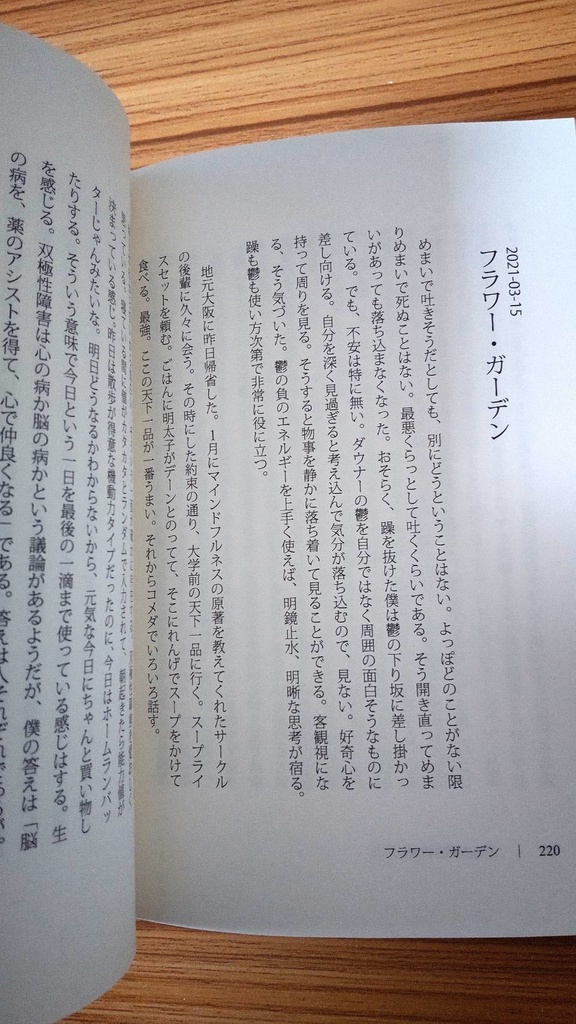 2021-03-15
フラワー・ガーデン
めまいで吐きそうだとしても、別にどうということはない。よっぽどのことがない限
りめまいで死ぬことはない。最悪くらっとして吐くくらいである。そう開き直ってめま
いがあっても落ち込まなくなった。おそらく、躁を抜けた僕は鬱の下り坂に差し掛かっ
ている。でも、不安は特に無い。ダウナーの鬱を自分ではなく周囲の面白そうなものに
差し向ける。自分を深く見過ぎると考え込んで気分が落ち込むので、見ない。好奇心を
持って周りを見る。そうすると物事を静かに落ち着いて見ることができる。客観視にな
る、そう気づいた。鬱の負のエネルギーを上手く使えば、明鏡止水、明晰な思考が宿る。
躁も鬱も使い方次第で非常に役に立つ。
地元大阪に昨日帰省した。1月にマインドフルネスの原著を教えてくれたサークル
の後輩に久々に会う。その時にした約束の通り、大学前の天下一品に行く。スープライ
スセットを頼む。ごはんに明太子がデーンとのってて、そこにれんげでスープをかけて
食べる。最強。ここの天下一品が一番うまい。それからコメダでいろいろ話す。
フラワー・ガーデン | 220
決まっている感じ。昨日は散歩が得意な機動力タイプだったのに、今日はホームランバッ
ターじゃんみたいな。明日どうなるかわからないから、元気な今日にちゃんと買い物し
たりする。そういう意味で今日という一日を最後の一滴まで使っている感じはする。生
を感じる。双極性障害は心の病か脳の病かという議論があるようだが、僕の答えは「脳
の病を、薬のアシストを得て、心で仲良くなる」である。答えは人それぞれであるが、